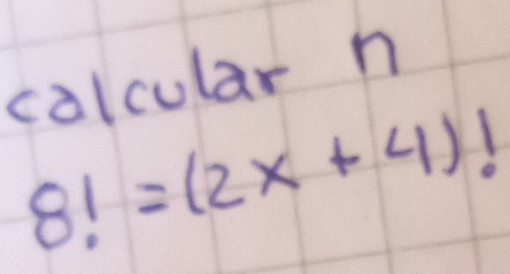 calcular n
8! = (2x + 4)!